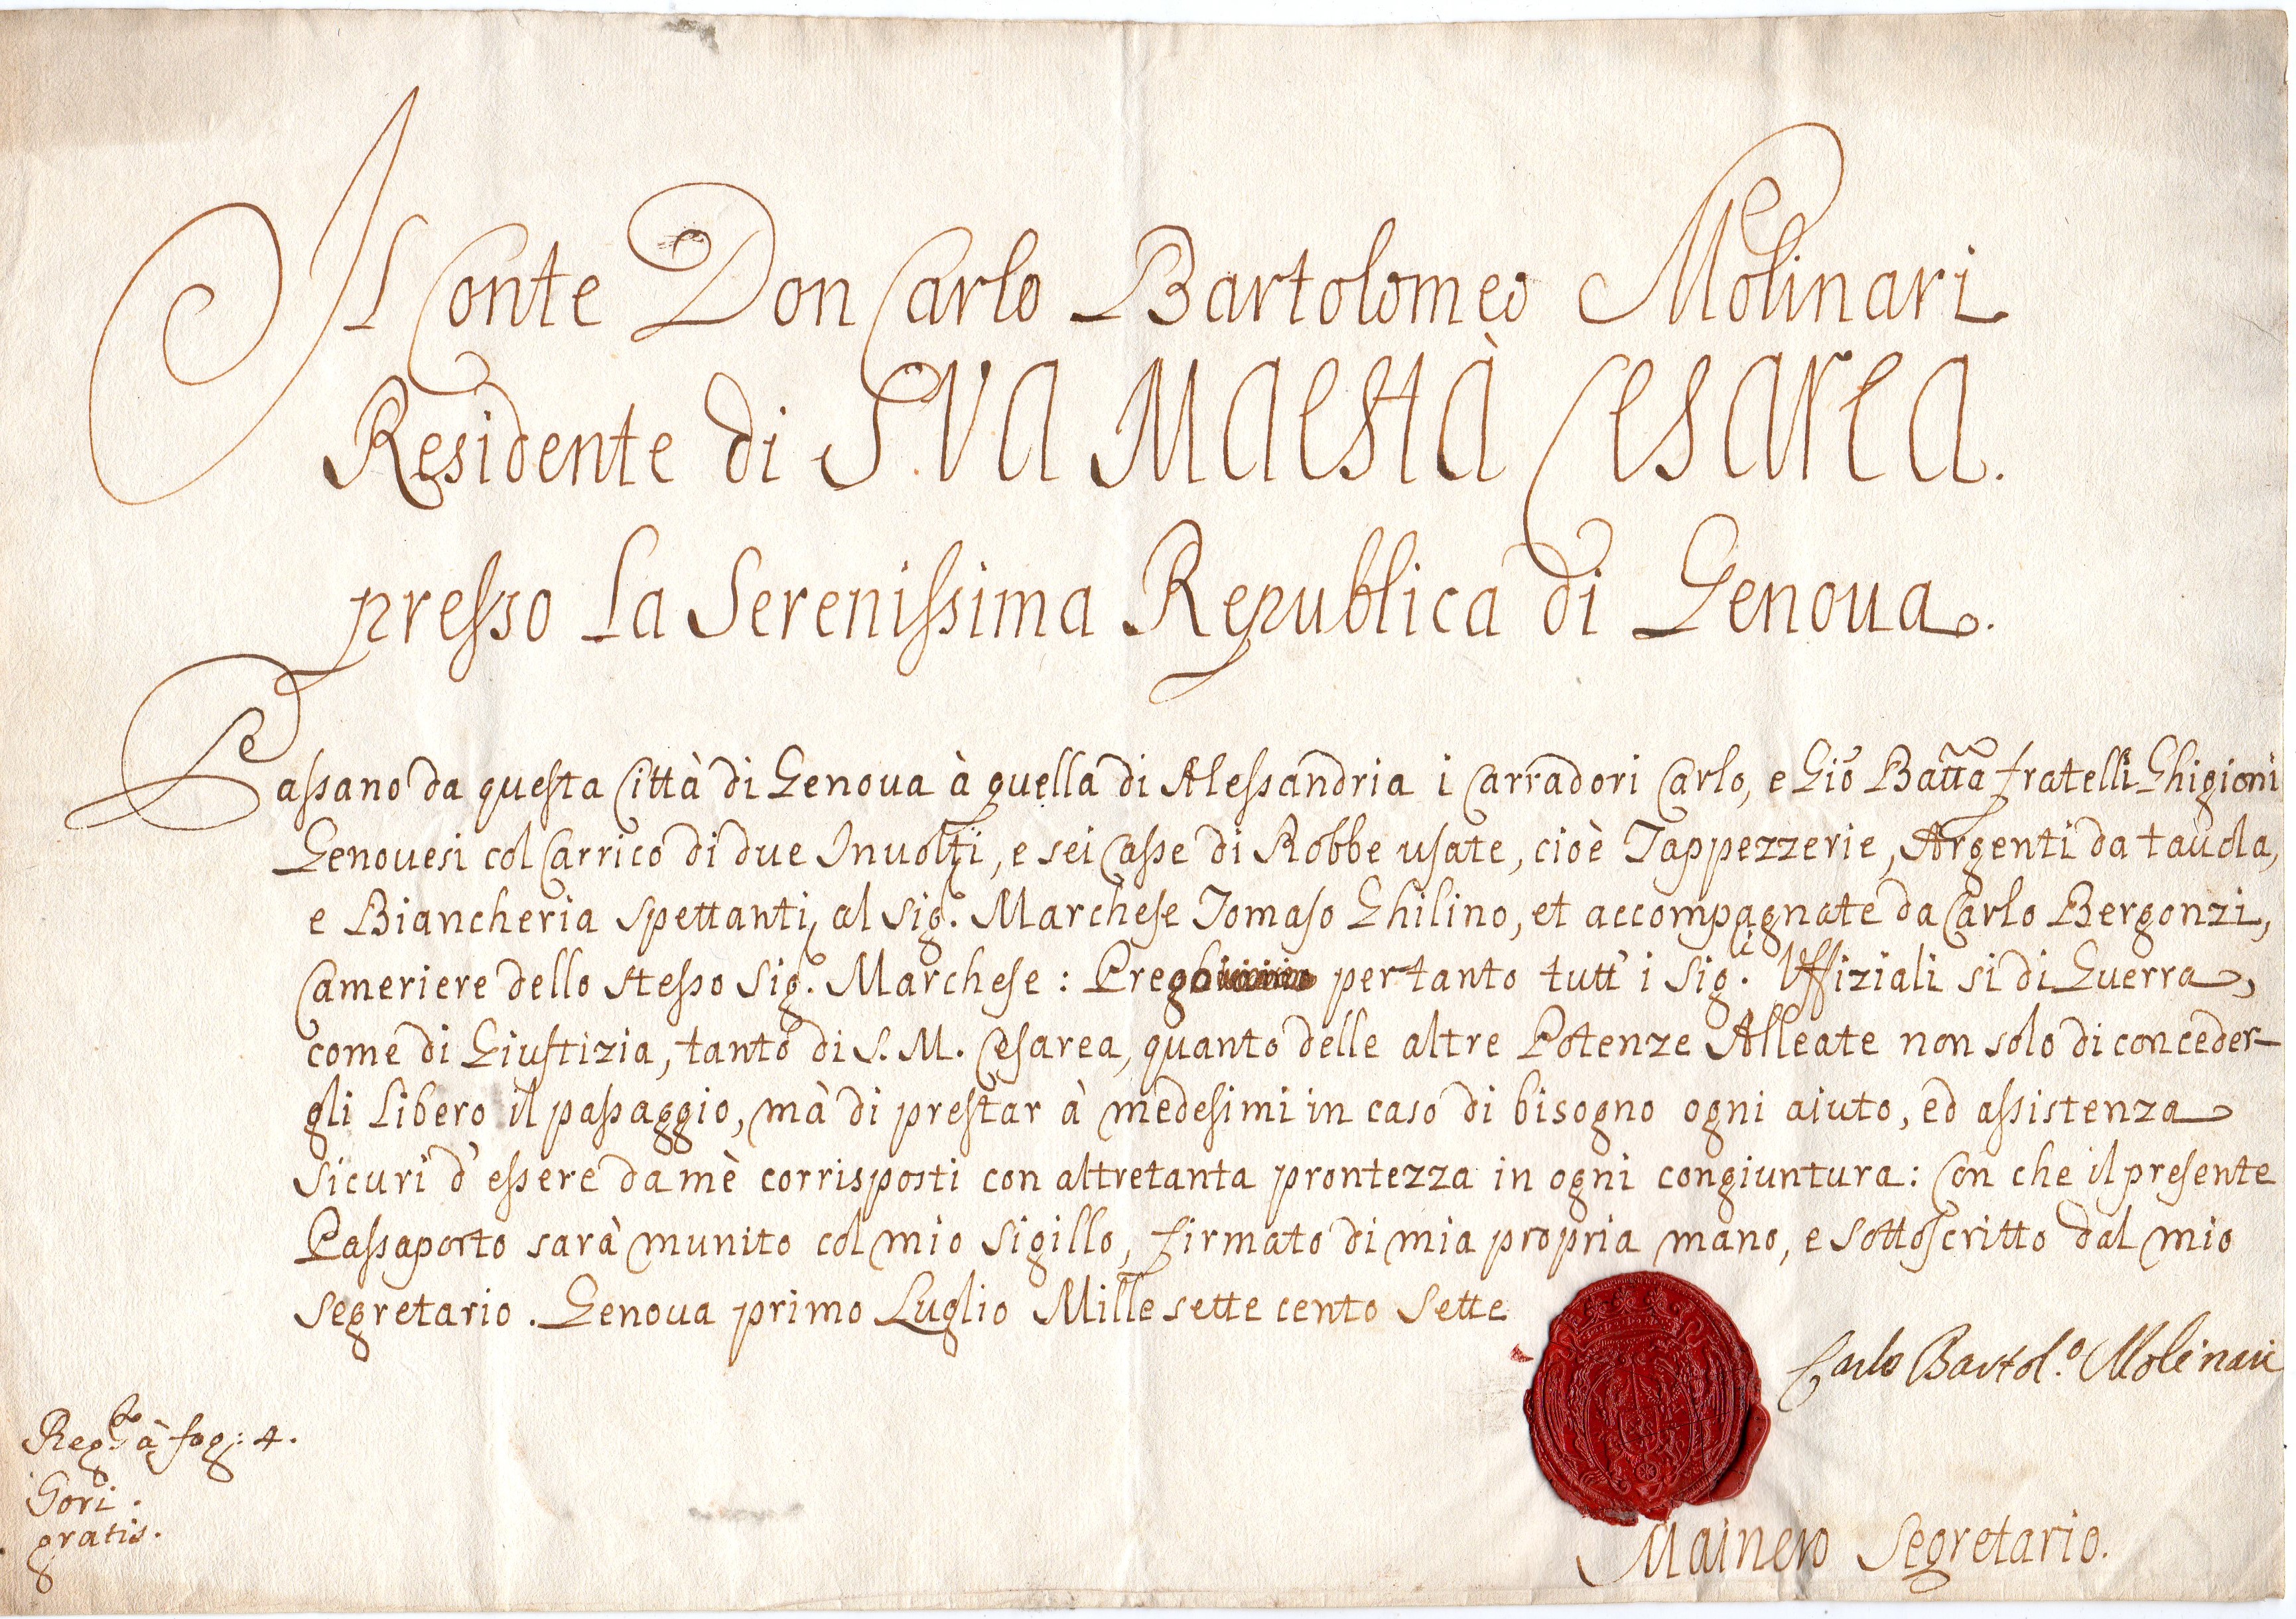 Il Conte Don Carlo Bartolomeo Molinari
Residente di Sua Maestà Cesarea.
presso la Serenissima Republica di Genoua.
Passano da questa Città di Genoua à quella di Alessandria i Carradori Carlo, e Gio Batta fratelli Ghigioni
Genouesi col Carrico di due Inuolti, e sei Casse di Robbe usate, cioè Tappezzerie, Argenti da tauola,
e Biancheria spettanti al Sig.r Marchese Tomaso Ghilino, et accompagnate da Carlo Bergonzi,
Cameriere dello stesso Sig. Marchese: Prego per tanto tutt' i Sig.i Uffiziali si di Guerra,
come di Giustizia, tanto di S. M. Cesarea, quanto delle altre Potenze Alleate non solo di conceder-
gli libero il passaggio, mà di prestar à medesimi in caso di bisogno ogni aiuto, ed assistenza
sicuri d'essere da mè corrisposti con altretanta prontezza in ogni congiuntura: Con che il presente
Passaporto sarà munito col mio Sigillo, firmato di mia propria mano, e sottoscritto dal mio
segretario. Genoua primo Luglio Mille sette cento sette
Carlo Bartol.o Molinari
Reg.to à fog: 4.
Gori.
gratis.
Mainero Segretario.